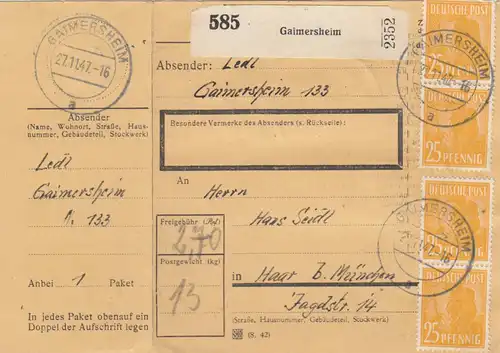 GAIMERSHEIM
27.11.47.-16
a
Absender
(Name, Wohnort, Straße, Haus-
nummer, Gebäudeteil, Stockwerk)
Ledl
Gaimersheim
N. 133
Anbei 1 Paket
In jedes Paket obenauf ein
Doppel der Aufschrift legen
585
Gaimersheim
2352
Absender: Ledl
Gaimersheim 133
Besondere Vermerke des Absenders (s. Rückseite):
An
Herrn
Hans Seidl
Freigebühr (RM)
2,70
Postgewicht (kg)
13
in Haar b. München
Jagdstr. 14
(Straße, Hausnummer, Gebäudeteil, Stockwerk)
(S. 42)
DEUTSCHE POST
25 PFENNIG
GAIMERSHEIM
a
25 PFENNIG
DEUTSCHE POST
GAIMERSHEIM
25 PFENNIG
a
25 PFENNIG